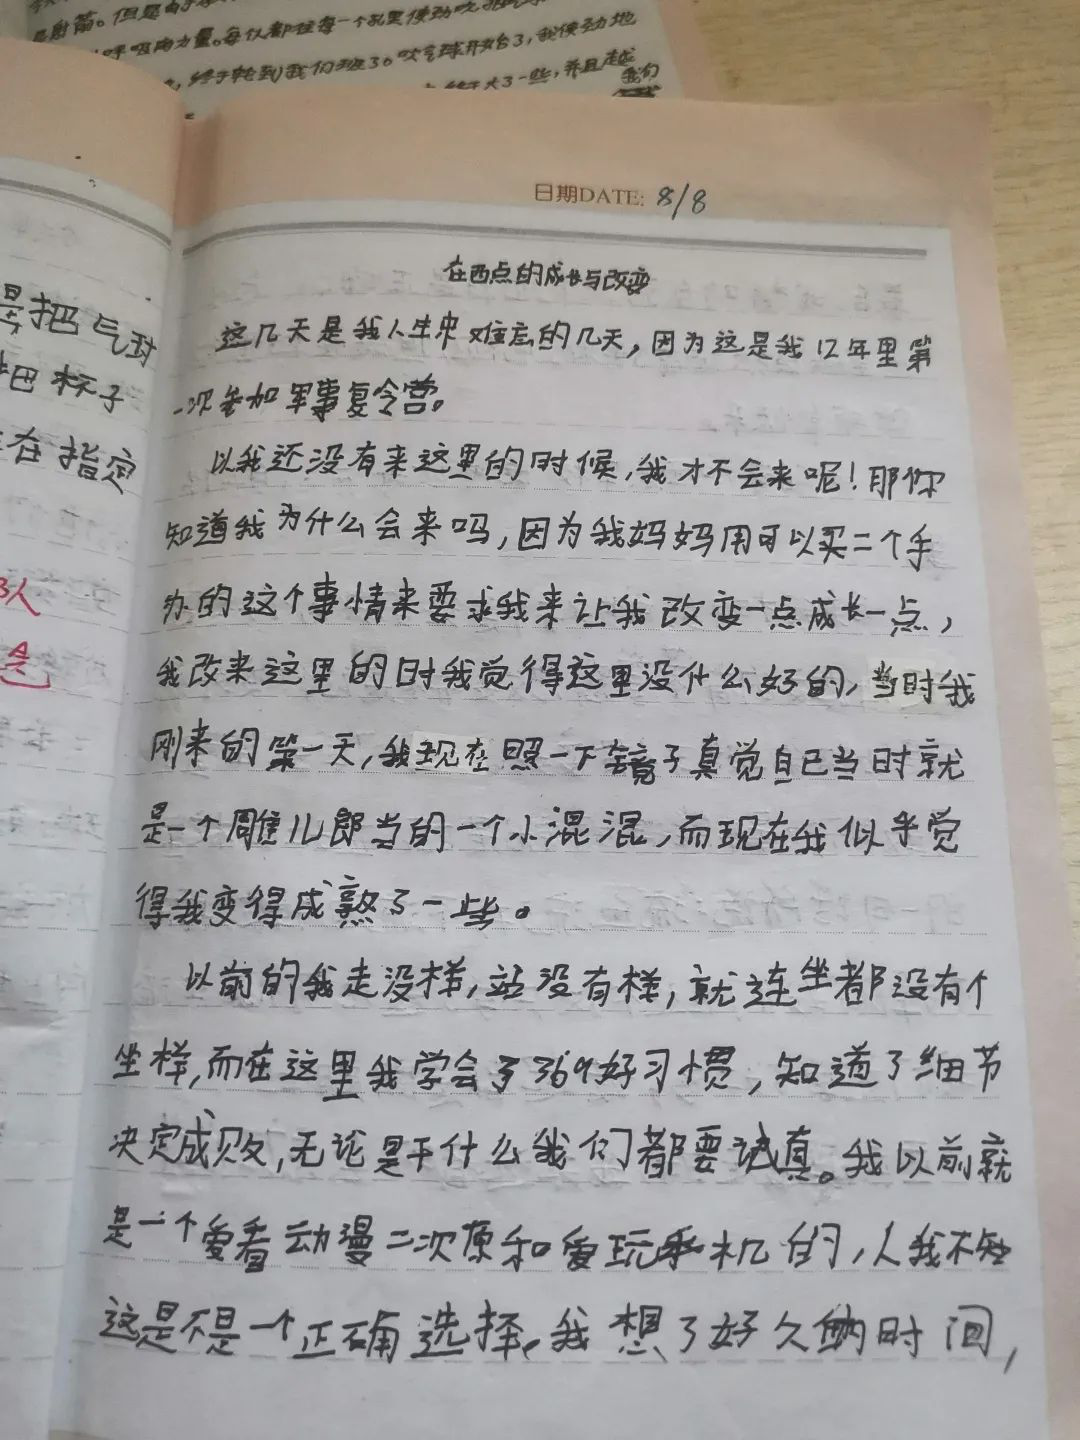 是射箭。但是由于
呼吸肉力量。每仪都在每一个
终于轮到我们班了。吹气球开始了,我使劲地
终于大了一些,并且越
我们
是把气球
把杯子
在指定
人
日期DATE: 8/8
在西点的成长与改变
这几天是我人生中难忘的几天,因为这是我12年里第
一次参加军事夏令营。
以我还没有来这里的时候,我才不会来呢!那你
知道我为什么会来吗,因为我妈妈用可以买二个手
办的这个事情来要求我来让我改变一点成长一点,
我改来这里的时我觉得这里没什么好的,当时我
刚来的第一天,我现在照一下镜子真觉自己当时就
是一个雕儿郎当的一个小混混,而现在我似乎觉
得我变得成熟了一些。
以前的我走没样,站没有样,就连坐都没有个
坐样,而在这里我学会了369好习惯,知道了细节
决定成败,无论是干什么我们都要认真。我以前就
是一个爱看动漫二次原和爱玩手机的,人我不知
这是不是一个正确选择,我想了好久的时间,